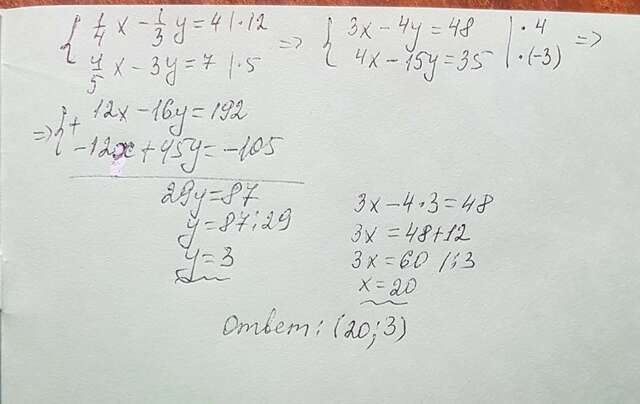 { 1/4 x - 1/3 y = 4 | · 12 => { 3x - 4y = 48 | · 4 =>
4/5 x - 3y = 7 | · 5 4x - 15y = 35 | · (-3)
=> { + 12x - 16y = 192
-12x + 45y = -105
29y = 87
y = 87 : 29
y = 3
3x - 4 · 3 = 48
3x = 48 + 12
3x = 60 / : 3
x = 20
Ответ: (20; 3)